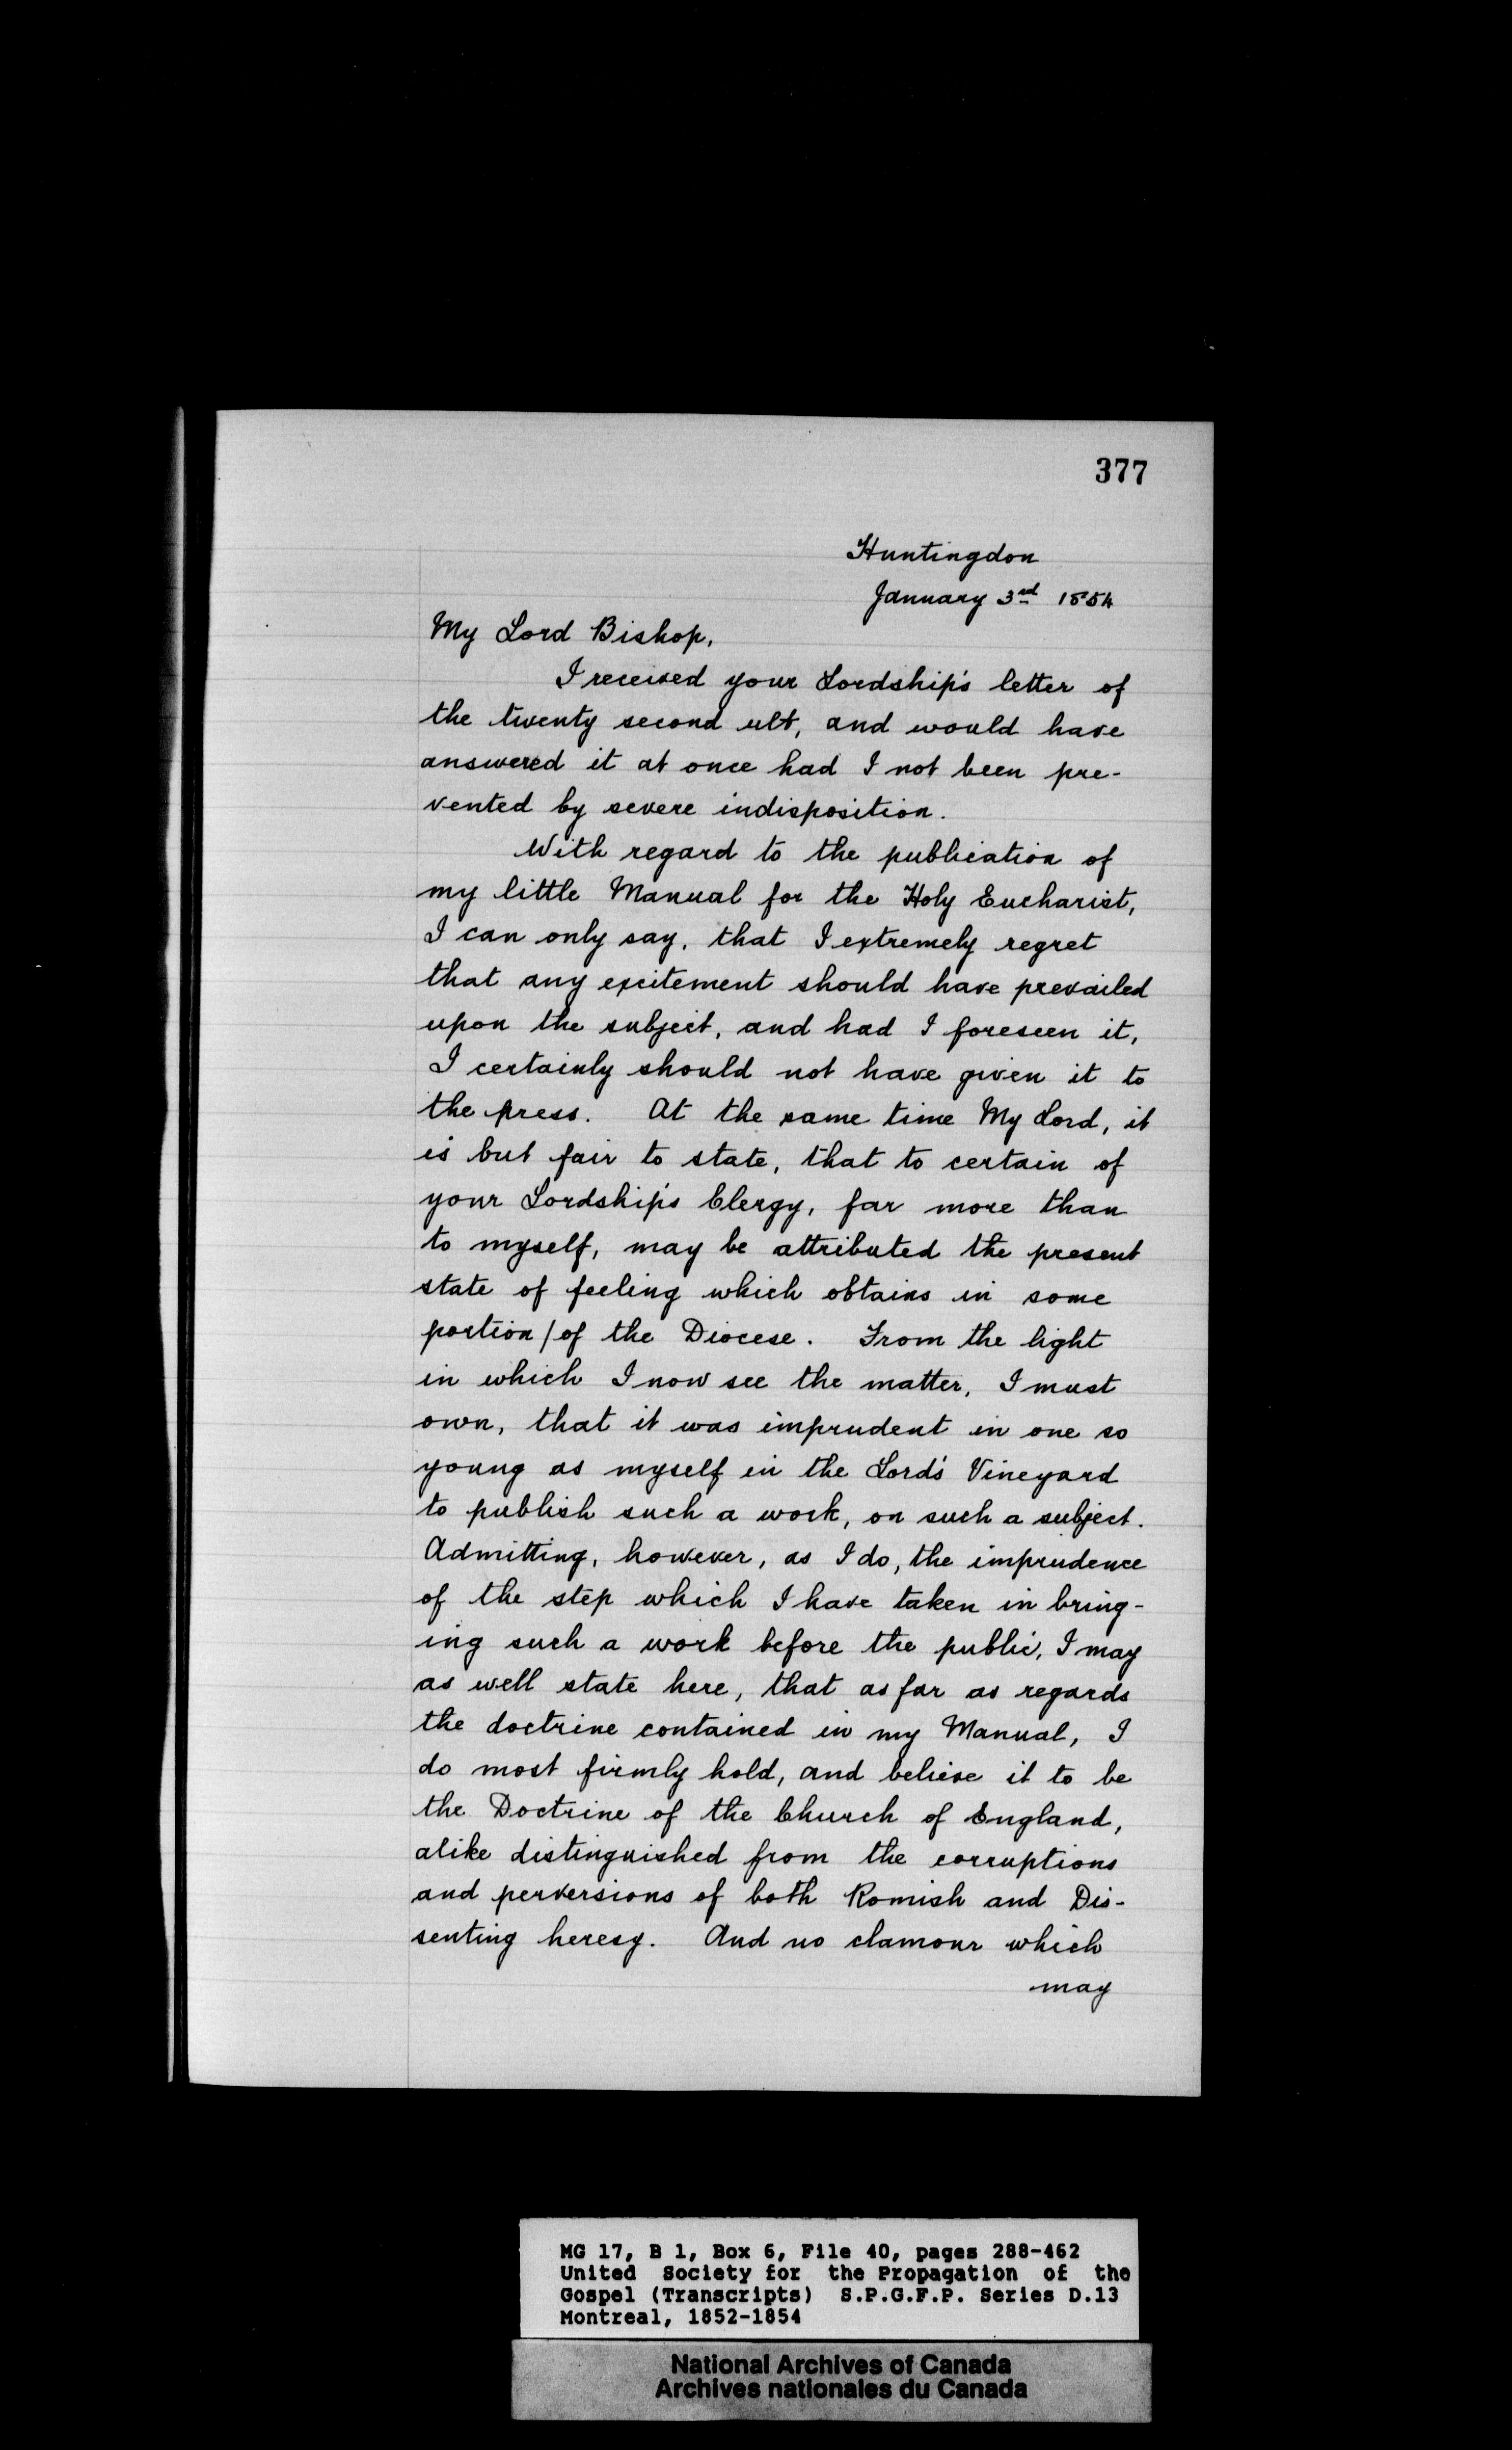 377
Huntingdon
January 3rd 1854
My Lord Bishop,
I received your Lordship's letter of
the twenty second ult, and would have
answered it at once had I not been pre-
vented by severe indisposition.
With regard to the publication of
my little Manual for the Holy Eucharist,
I can only say, that I extremely regret
that any excitement should have prevailed
upon the subject, and had I foreseen it,
I certainly should not have given it to
the press. At the same time My Lord, it
is but fair to state, that to certain of
your Lordship's Clergy, far more than
to myself, may be attributed the present
state of feeling which obtains in some
portion/of the Diocese. From the light
in which I now see the matter, I must
own, that it was imprudent in one so
young as myself in the Lord's Vineyard
to publish such a work, on such a subject.
Admitting, however, as I do, the imprudence
of the step which I have taken in bring-
ing such a work before the public, I may
as well state here, that as far as regards
the doctrine contained in my Manual, I
do most firmly hold, and believe it to be
the Doctrine of the Church of England,
alike distinguished from the corruptions
and perversions of both Romish and Dis-
senting heresy. And no clamour which
may
MG 17, B 1, Box 6, File 40, pages 288-462
United Society for the Propagation of the
Gospel (Transcripts) S.P.G.F.P. Series D.13
Montreal, 1852-1854
National Archives of Canada
Archives nationales du Canada